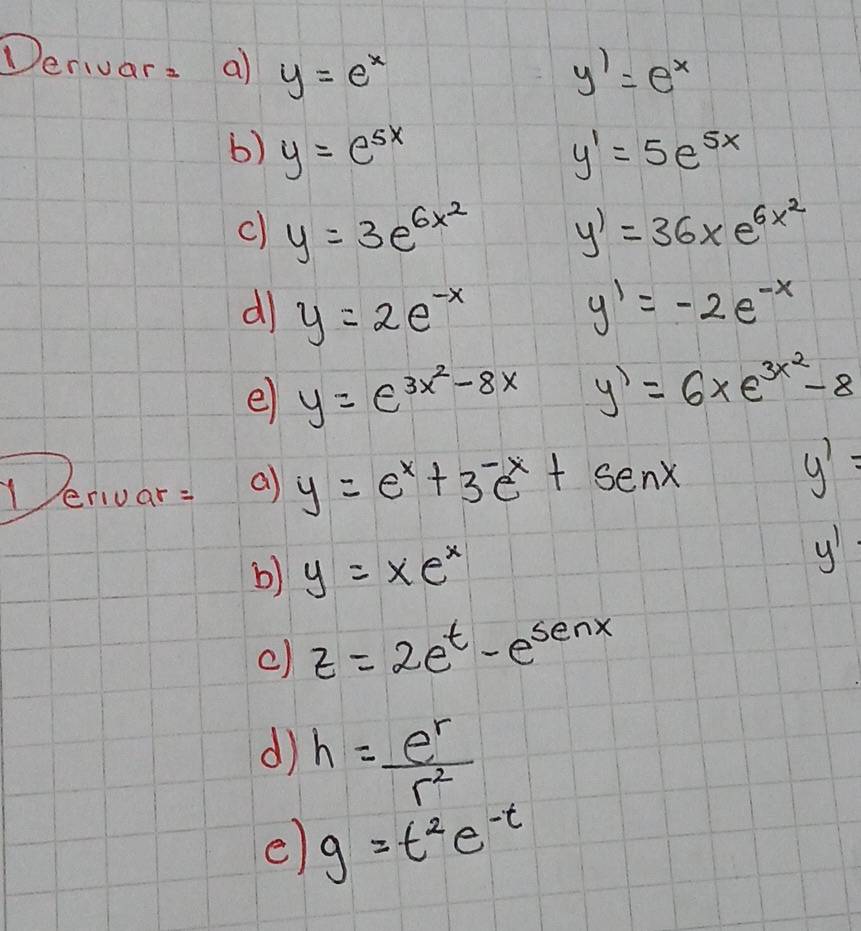 Derivar= a) y = eˣ y' = eˣ
b) y = e⁵ˣ y' = 5e⁵ˣ
c) y = 3e^{6x²} y' = 36xe^{6x²}
d) y = 2e⁻ˣ y' = -2e⁻ˣ
e) y = e^{3x²-8x} y' = 6xe^{3x²}-8
Derivar= a) y = eˣ + 3⁻eˣ + senx y' =
b) y = xeˣ y'
c) z = 2eᵗ - e^{senx}
d) h = eʳ/r²
e) g = t²e⁻ᵗ